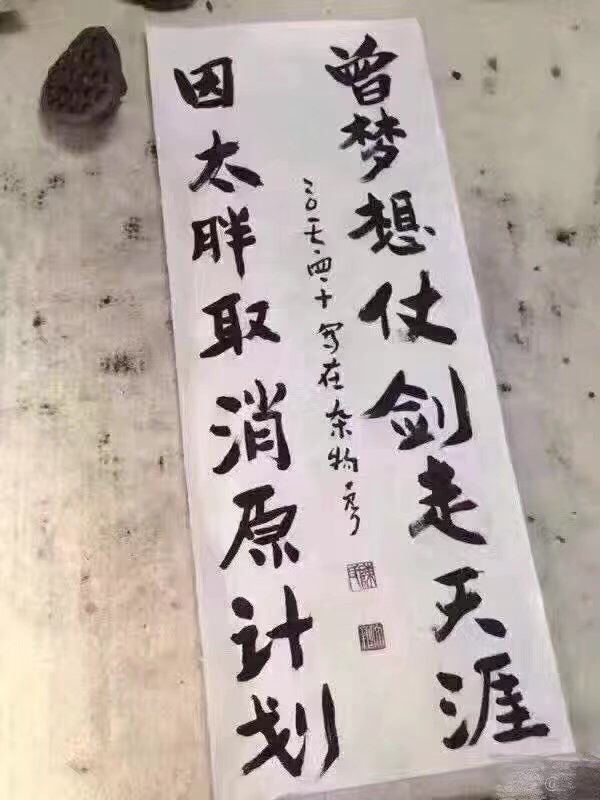 曾梦想仗剑走天涯
因太胖取消原计划
二〇一七·四·十 写在杂物